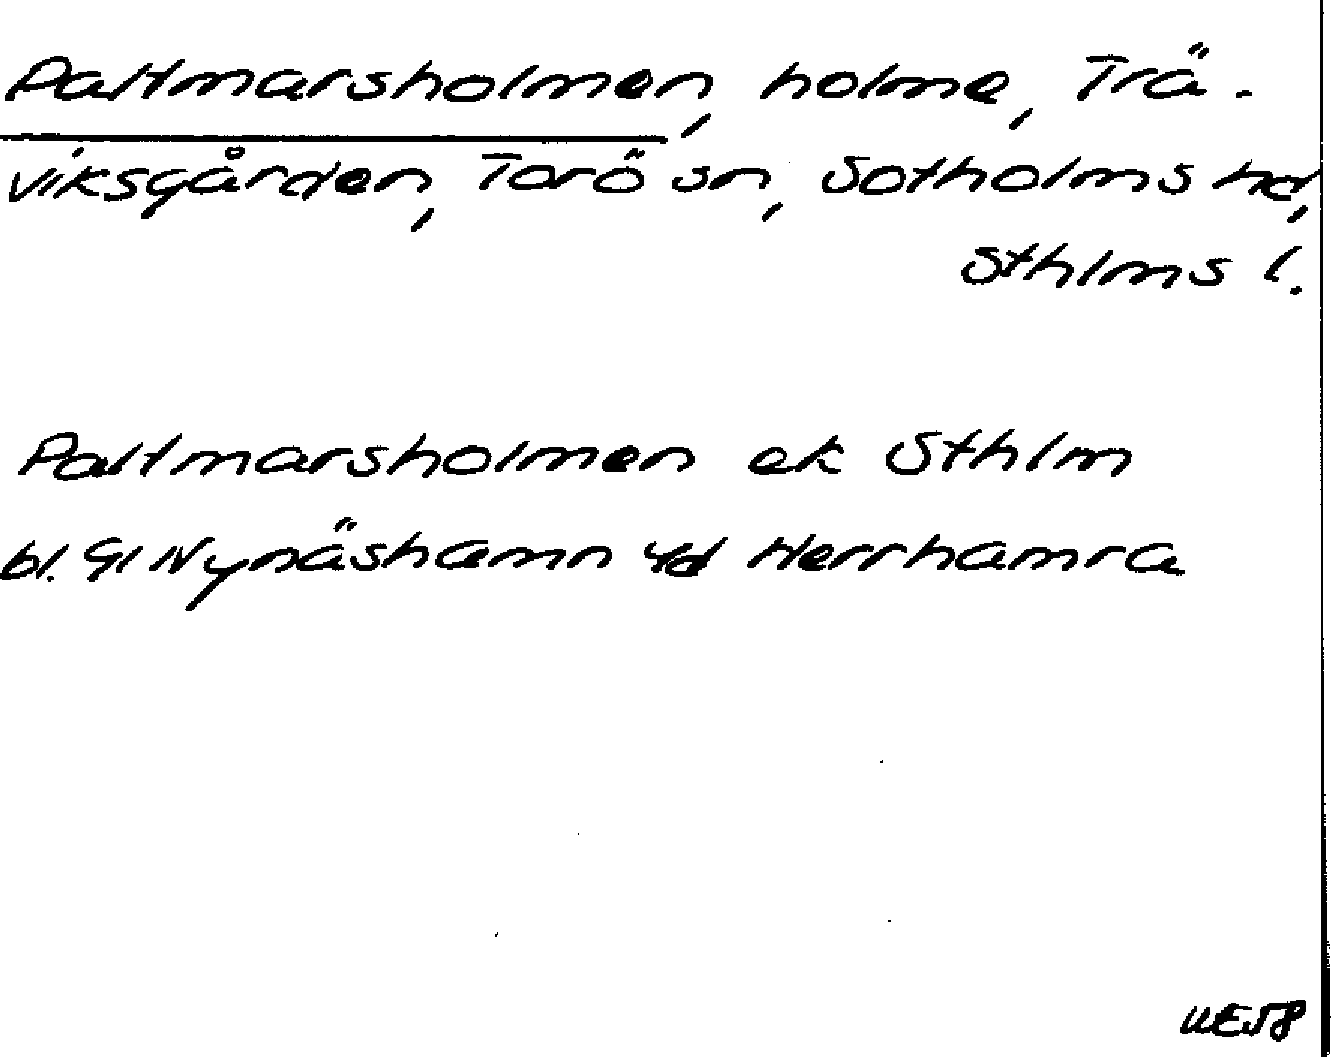 Paltmarsholmen, holme, Trä-
viksgården, Torö sn, Sotholms hd,
Sthlms l.
Paltmarsholmen ek Sthlm
bl. 91 Nynäshamn 4d Herrhamra
WE58